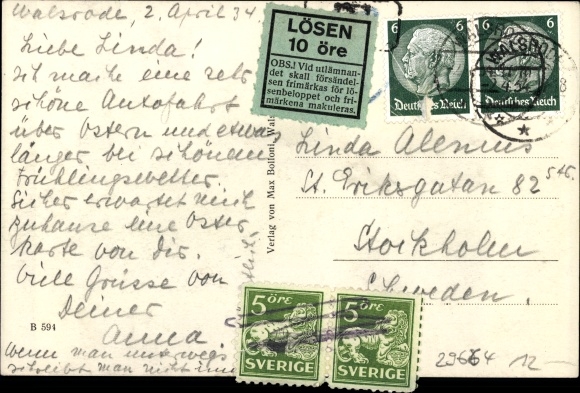 Walsrode, 2. April 34
Liebe Linda!
ich mache eine sehr
schöne Autofahrt
über Ostern und etwas
länger bei schönem
Frühlingswetter.
Sicher erwartet mich
zuhause eine Oster
karte von Dir.
Viele Grüsse von
Deiner
Anna
Wenn man unterwegs
schreibt man nicht
B 594
Verlag von Max Bolfoni, Wals
LÖSEN
10 öre
OBS.! Vid utlämnan-
det skall försändel-
sen frimärkas för lö-
senbeloppet och fri-
märkena makuleras.
6 6
Deutsches Reich
6 6
Deutsches Reich
WALSRODE
Linda
St. Eriksgatan 82
Stockholm
Schweden.
5 ÖRE
SVERIGE
5 ÖRE
SVERIGE
29664 12-